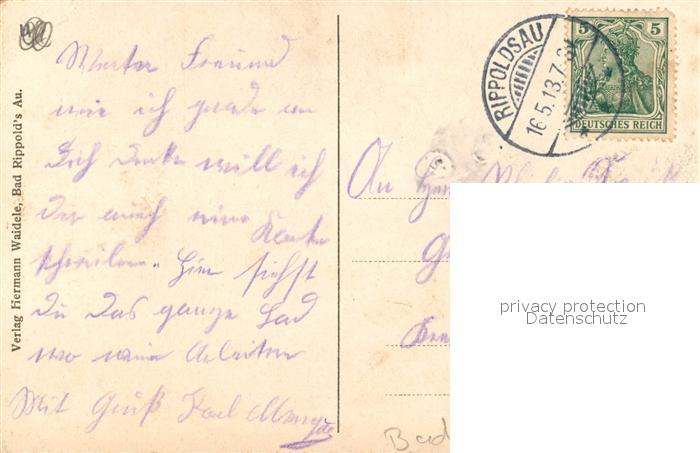 Werter Freund
wie ich gerade an
Dich denke will ich
Dir auch eine
Karte
schreiben. Hier siehst
du das ganze Bad
wo wir arbeiten
Mit Gruß Karl
An
Bad
RIPPOLDSAU
16.5.13.7-8
5 5
DEUTSCHES REICH
Verlag Hermann Waidele, Bad Rippold's Au.
privacy protection
Datenschutz